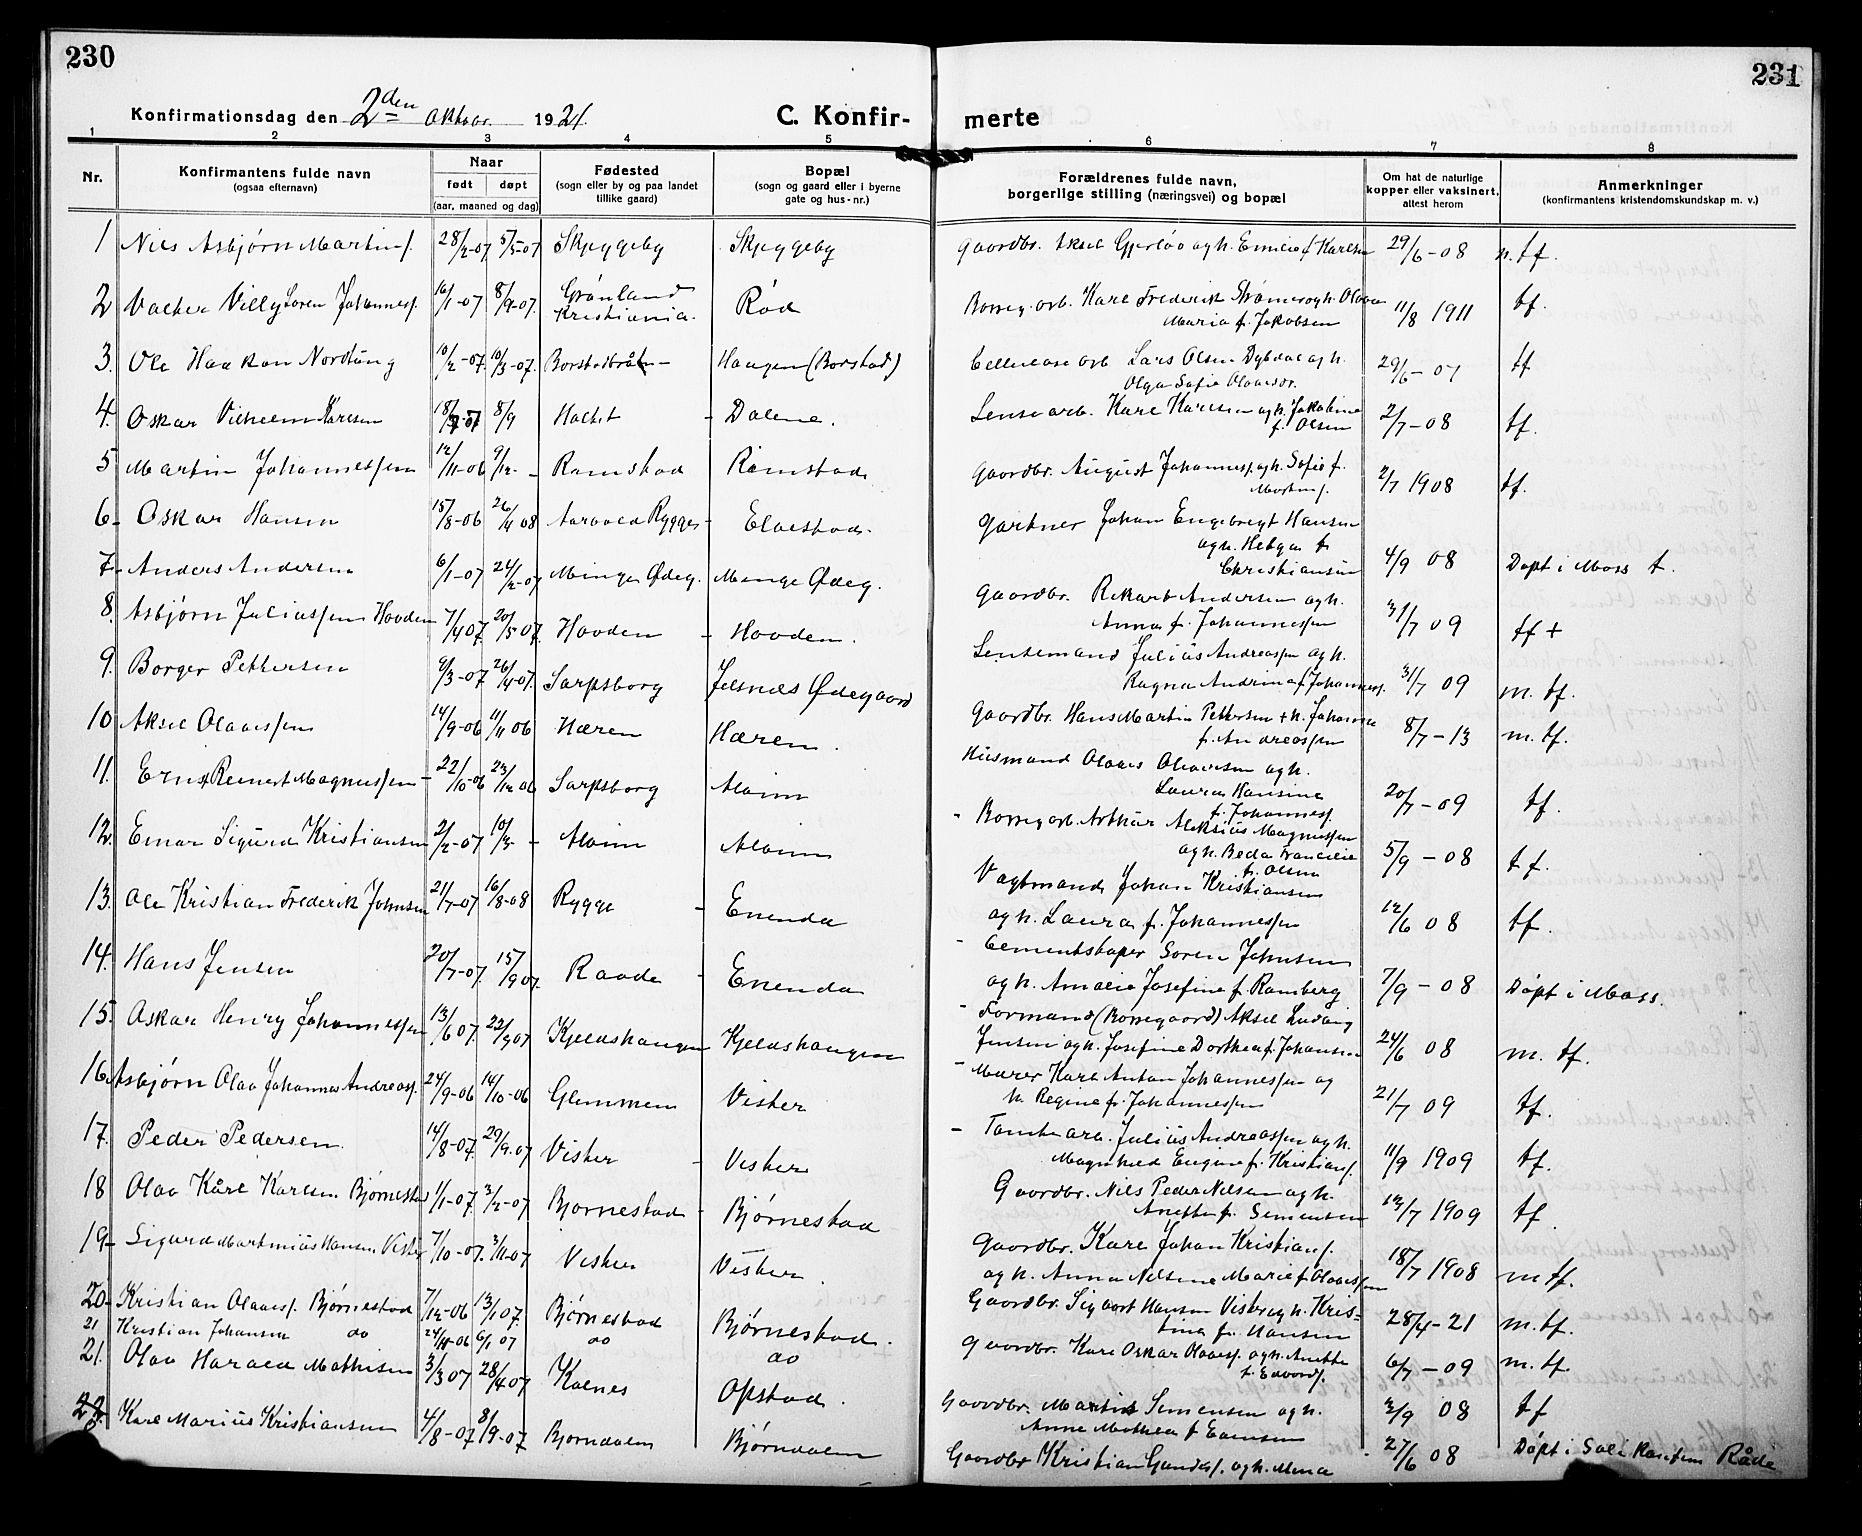 230
231
Konfirmationsdag den 2den Oktobr. 1921.
C. Konfir-
merte
1 2 3 4 5 6 7 8
Nr.
Konfirmantens fulde navn
(ogsaa efternavn)
Naar
født døpt
(aar, maaned og dag)
Fødested
(sogn eller by og paa landet
tillike gaard)
Bopæl
(sogn og gaard eller i byerne
gate og hus-nr.)
Forældrenes fulde navn,
borgerlige stilling (næringsvei) og bopæl
Om hat de naturlige
kopper eller vaksinert,
attest herom
Anmerkninger
(konfirmantens kristendomskundskap m. v.)
1 Nils Asbjørn Martins. 28/2-07 5/5-07 Skjeggeby Skjeggeby
2 Valter Villy Soren Johannes. 16/1-07 8/9-07. Grønland Kristiania. Rød
3. Ole Haakon Nordtung 10/2-07. 10/3-07. Haugen (Borstad)
4. Oskar Vilhelm Karlsen 8/9 Dalene.
5 Martin Johannessen 12/11-06 9/12- Ramstad Ramstad
6- Oskar Hansen 15/8-06 26/4 08 Elvestad.
7- Anders Andersen 6/1-07 24/2-07 Minge Ødeg. Minge Ødeg.
8. Asbjørn Juliussen Hovden 7/4 07. 20/5 07. Hovden - Hovden.
9. Borger Pettersen 9/3-07 26/4-07. Sarpsborg Jelsnes Ødegaard
10 Aksel Olavessen 14/9-06 11/11 06 Hæren Hæren.
11. Ernst Reinert Magnussen - 22/10-06 23/12-06 Sarpsborg Alvim
12. Einar Sigurd Kristiansen 2/2-07 10/3- Alvim Alvim
13. Ole Kristian Frederik Johnsen 21/7-07 16/8-08 Rygge - Enenda
14. Hans Jensen 20/7-07. 15/9 07. Raade - Enenda
15. Oskar Henry Johannessen 13/6 07. 22/9 07 Kjeldshaugen Kjeldshaugen
16. Asbjørn Olav Johannes Andreass. 24/9-06 14/10-06 Glemmen Vister
17. Peder Pedersen 14/8-07. 29/9-07 Vister - Vister
18 Olav Kåre Karlsen Bjørnestad 1/1-07. 3/2-07 Bjornestad - Bjørnestad
19- Sigurd Martinius Hansen Vister 7/10-07. 3/11-07 Visten Visten.
20- Kristian Olaves. Bjørnestad 7/12-06 13/1 07. Bjørnestad Bjørnestad.
21 Kristian Johansen do 6/1 07 do do
21. Olav Harald Mathisen 3/3 07 28/4 07 Kalnes Opstad.
Karl Marius Kristiansen 4/8-07 8/9-07 Bjorndalen Bjørndalen
Gaardbr. Aksel Gjerløv og h. Emilie f. Karlsen 29/6-08 n. tf.
Borreg. arb. Karl Frederik Strømer og h. Olava
Maria f. Jakobsen 11/8 1911 tf.
Cellulose arb Lars Olsen Dybdal og h.
Olga Sofie Olavesdr. 29/6-07 tf
Karl Karlsen og h. Jakobine
f. Olsen 2/7-08 tf.
Gaardbr. August Johanness. og h. Sofie f.
Martins. 2/7 1908 tf.
Gartner Johan Engebregt Hansen
og h. Helga f.
Christiansen 4/9 08 Døpt i Moss t.
Gaardbr. Rikart Andersen og h.
Anna f. Johannessen 31/7 09 tf +
Lensemand Julius Andreassen og h.
Ragna Andrina f. Johanness. 31/7 09 m. tf.
Gaardbr. Hans Martin Pettersen + h. Johanne
f. Andreassen 8/7-13 m. tf.
Husmand Olaves Oliversen og h.
Laura Hansine
f. Johanness. 20/7-09 tf.
- Borreg arb. Arthur Aleksius Magnussen
og h. Beda
f. Olsen 5/9-08 tf.
Vagtmand Johan Kristiansen
og h. Laura f. Johannessen 12/6 08 tf.
- Cementstøper Soren Johnsen
og h. Amalie Josefine f. Ramberg 7/9-08 Døpt i Moss.
- Formand (Borregaard) Aksel Ludvig
Jensen og h. Josefine Dorthea f. Johansen 24/6 08 m. tf.
- Murer Karl Anton Johannessen og
h. Regine f. Johannessen 21/7 09 tf.
- Tomtearb. Julius Andreassen og h.
Magnhild Eugine f. Kristians. 11/9 1909 tf.
Gaardbr. Nils Peder Nilsen og h.
Anette f. Simensen 12/7 1909 tf.
Gaardbr. Karl Johan Kristians.
og h. Anna Nilsine Marie f. Olavessen 18/7 1908 m tf.
Gaardbr. Sigvart Hansen Vister og h. Kris-
tina f. Hansen 28/4-21 m. tf.
Gaardbr. Karl Oskar Olaves. og h. Anette
f. Edvards. 6/7-09 m. tf.
Gaardbr. Martin Simensen og h.
Anne Mathea f. 3/9 08 tf
Gaardbr Kristian og h. 27/6 08 Døpt i Råde